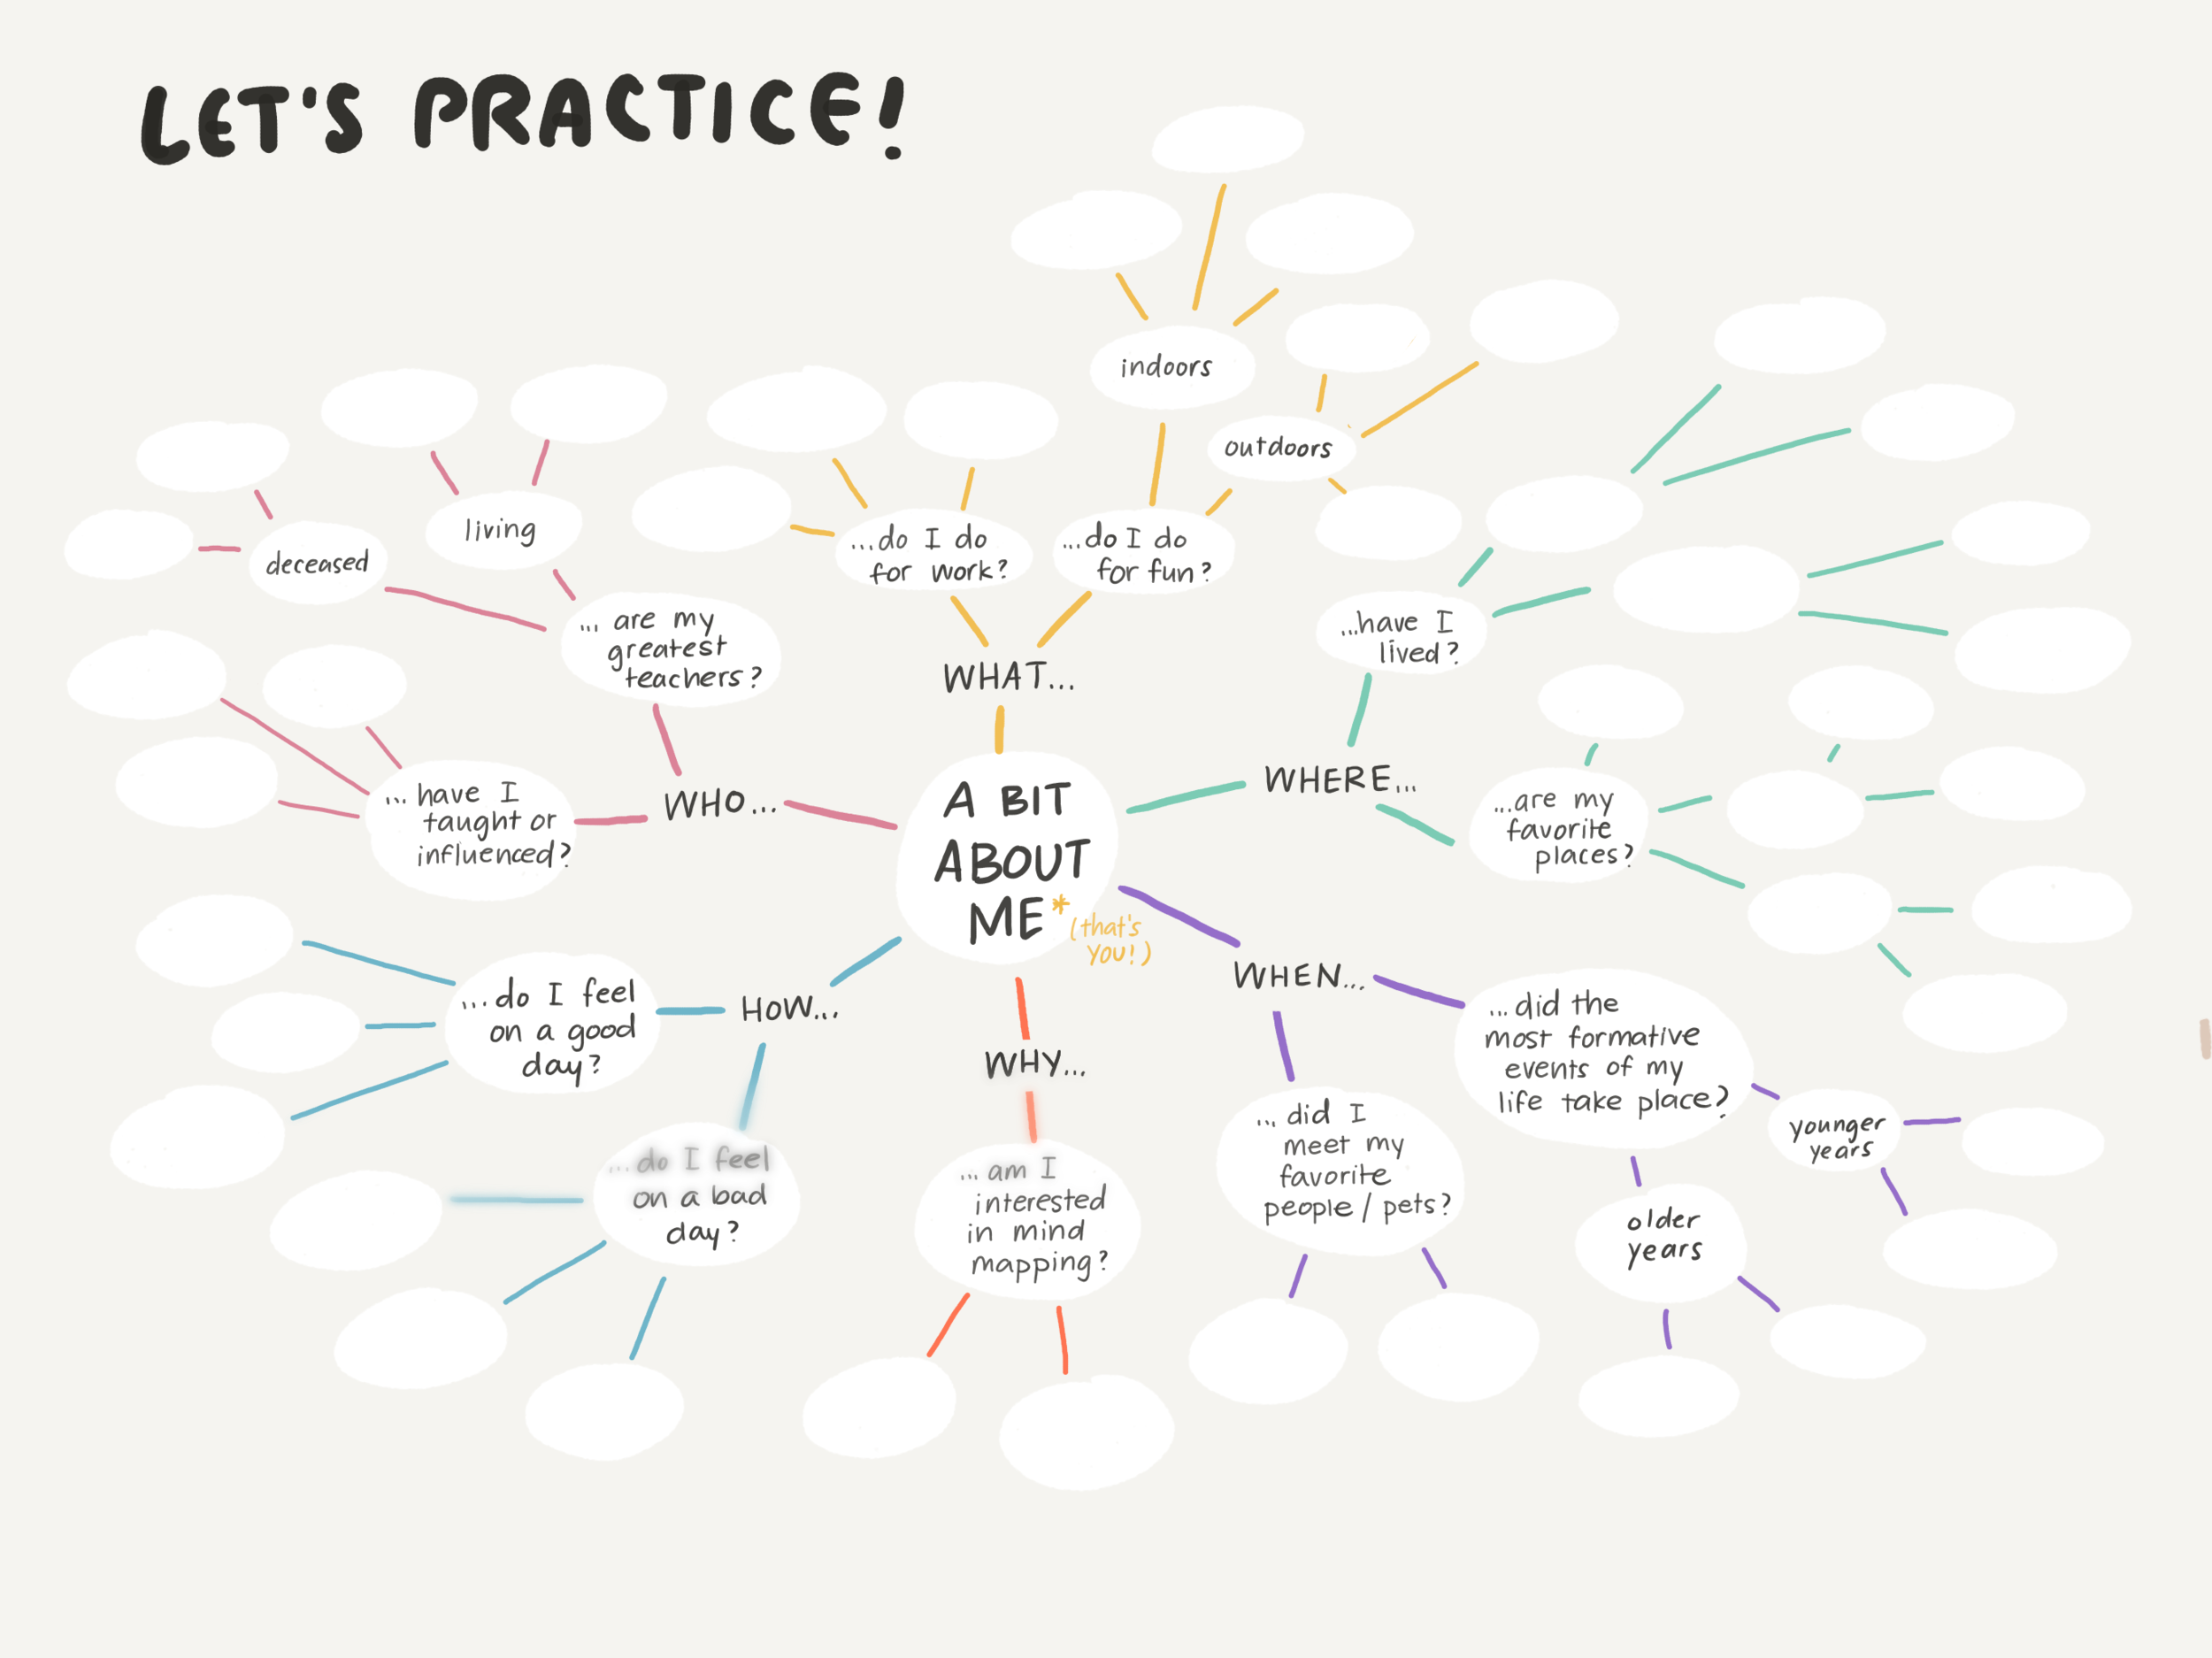 LET'S PRACTICE!
indoors
outdoors
living
deceased
...do I do
for work?
...do I do
for fun?
... are my
greatest
teachers?
...have I
lived?
WHAT...
WHO...
... have I
taught or
influenced?
A BIT
ABOUT
ME*
(that's
YOU!)
WHERE...
...are my
favorite
places?
HOW...
...do I feel
on a good
day?
...do I feel
on a bad
day?
WHY...
...am I
interested
in mind
mapping?
WHEN...
...did I
meet my
favorite
people / pets?
...did the
most formative
events of my
life take place?
younger
years
older
years